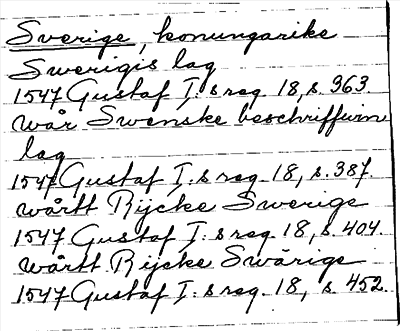 Sverige, konungarike
Swerigis lag
1547 Gustaf I:s reg. 18, s. 363.
wår Swenske beschriffwin
lag
1547 Gustaf I:s reg. 18, s. 387.
wårtt Rijcke Swerige
1547 Gustaf I:s reg. 18, s. 404.
wårtt Rijcke Swärige
1547 Gustaf I:s reg. 18, s. 452.